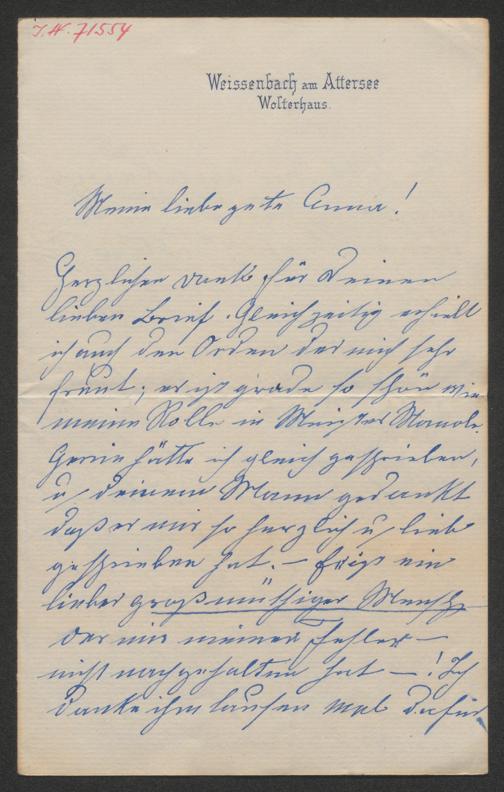 I.N. 71554
Weissenbach am Attersee
Wolterhaus.
Meine liebe gute Anna!
Herzlichen Dank für Deinen
lieben Brief. Gleichzeitig erhielt
ich auch den Orden der mich sehr
freut; er ist grade so schön wie
meine Rolle in Meister Manole.
Gerne hätte ich gleich geschrieben,
u, deinem Mann gedankt
daß er mir so herzlich u, lieb
geschrieben hat. – Er ist ein
lieber großmüthiger Mensch
der mir meinen Fehler –
nicht nachgehalten hat – ! Ich
danke ihm tausen mal dafür